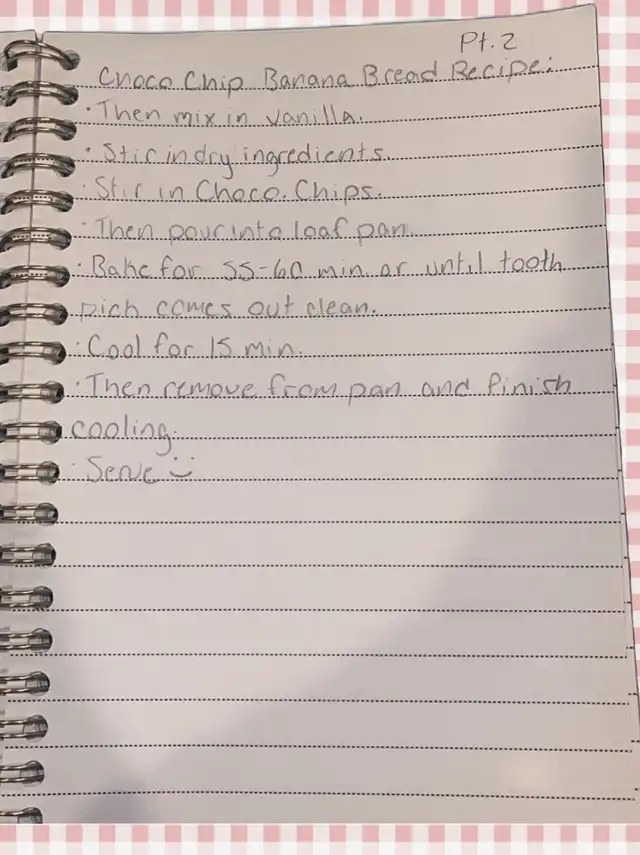 Pt. 2
Choco Chip Banana Bread Recipe:
· Then mix in vanilla.
· Stir in dry ingredients.
· Stir in Choco. Chips.
· Then pour into loaf pan.
· Bake for 55-60 min. or until tooth
pick comes out clean.
· Cool for 15 min.
· Then remove from pan and finish
cooling.
· Serve :)